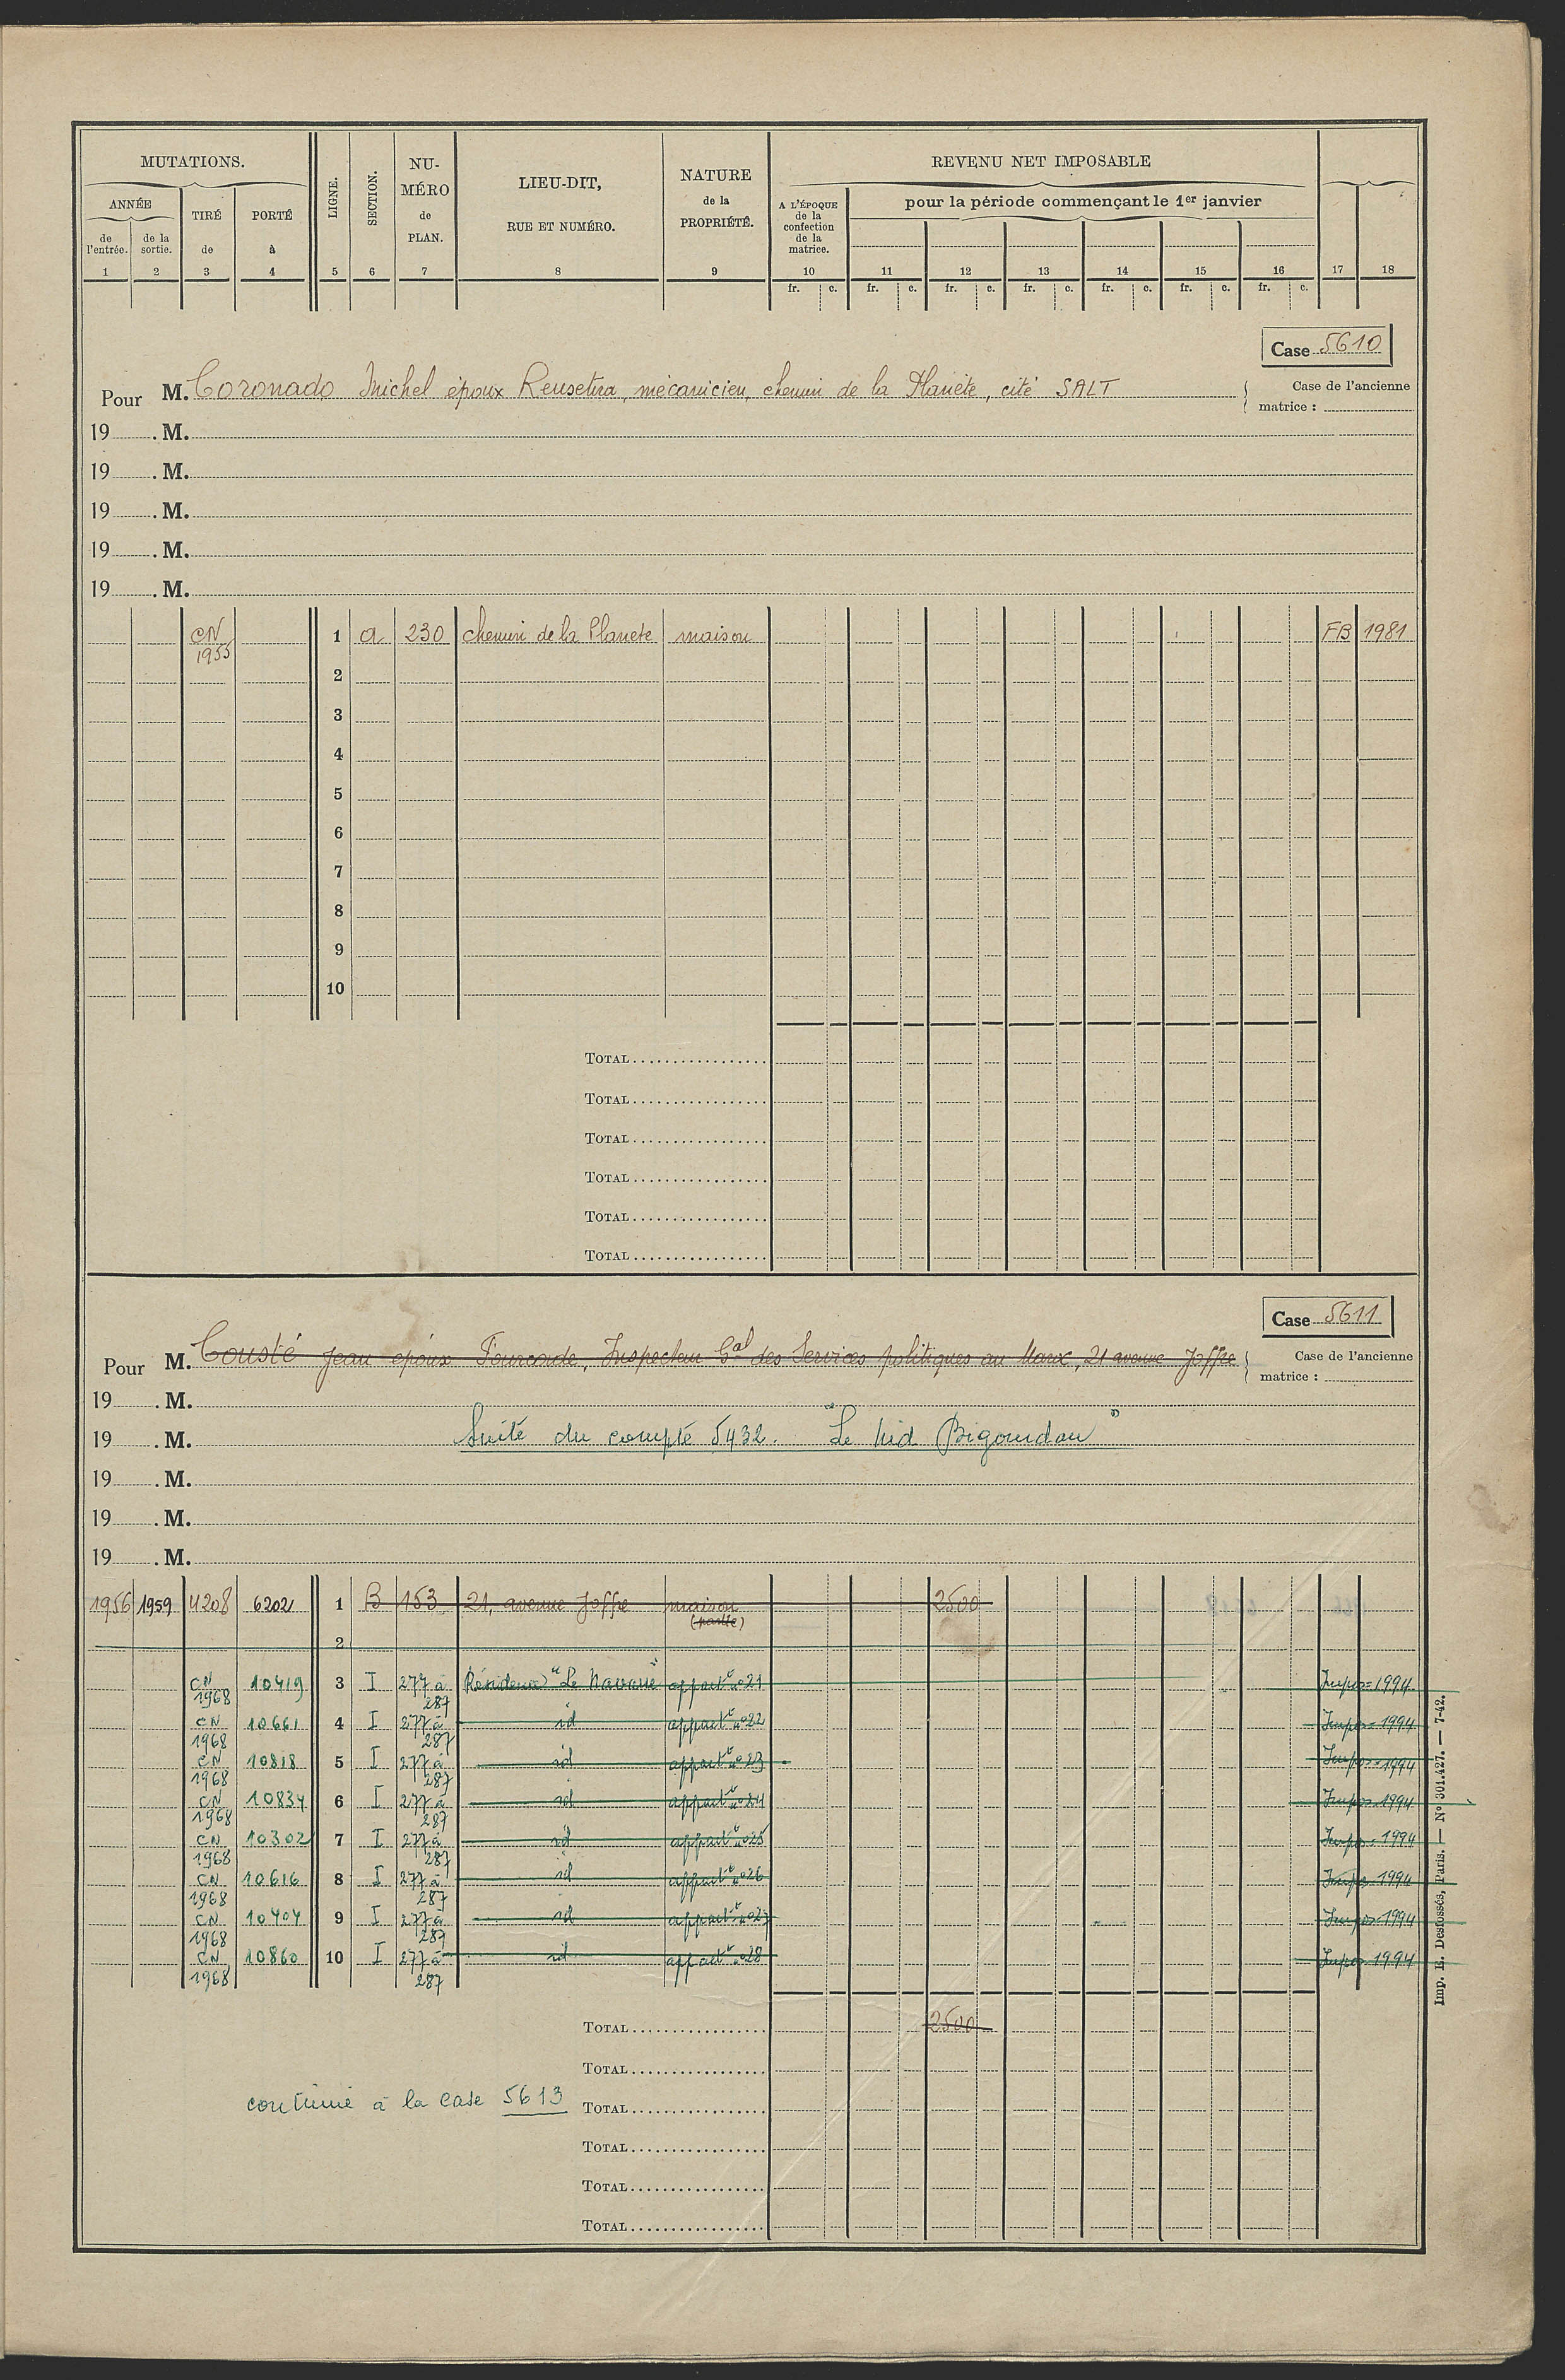 MUTATIONS.
ANNÉE
de l'entrée.
de la sortie.
TIRÉ de
PORTÉ à
LIGNE.
SECTION.
NUMÉRO de PLAN.
LIEU-DIT,
RUE ET NUMÉRO.
NATURE de la PROPRIÉTÉ.
REVENU NET IMPOSABLE
A L'ÉPOQUE de la confection de la matrice.
pour la période commençant le 1er janvier
1 2 3 4 5 6 7 8 9 10 11 12 13 14 15 16 17 18
fr. c. fr. c. fr. c. fr. c. fr. c. fr. c. fr. c.
Case 5610
Pour M. Coronado Michel époux, mécanicien, chemin de la Planète, cité SALT
Case de l'ancienne matrice :
19 . M.
19 . M.
19 . M.
19 . M.
19 . M.
CN 1955 1 a 230 chemin de la Planete maison FB 1981
2
3
4
5
6
7
8
9
10
TOTAL
TOTAL
TOTAL
TOTAL
TOTAL
TOTAL
Case 5611
Pour M. Cousté Jean époux Fourcade, Inspecteur Gal des Services politiques au Maroc, 21 avenue Joffre
Case de l'ancienne matrice :
19 . M.
19 . M. Suite du compte 5432. "Le Nid Bigourdan"
19 . M.
19 . M.
19 . M.
1956 1959 4208 6202 1 B 153 21, avenue Joffre maison (partie) 2500
2
CN 1968 10419 3 I 277 à 287 Résidence "Le Navarre" appart t n° 21 Impos 1994
CN 1968 10661 4 I 277 à 287 id appart t n° 22 Impos 1994
CN 1968 10818 5 I 277 à 287 id appart t n° 23 Impos 1994
CN 1968 10834 6 I 277 à 287 id appart t n° 24 Impos 1994
CN 1968 10302 7 I 277 à 287 id appart t n° 25 Impos 1994
CN 1968 10616 8 I 277 à 287 id appart t n° 26 Impos 1994
CN 1968 10404 9 I 277 à 287 id appart t n° 27 Impos 1994
CN 1968 10860 10 I 277 à 287 id appart t n° 28 Impos 1994
TOTAL 2500
TOTAL
continué à la case 5613 TOTAL
TOTAL
TOTAL
TOTAL
Imp. E. Desfossés, Paris. — N° 301.427. — 7-42.